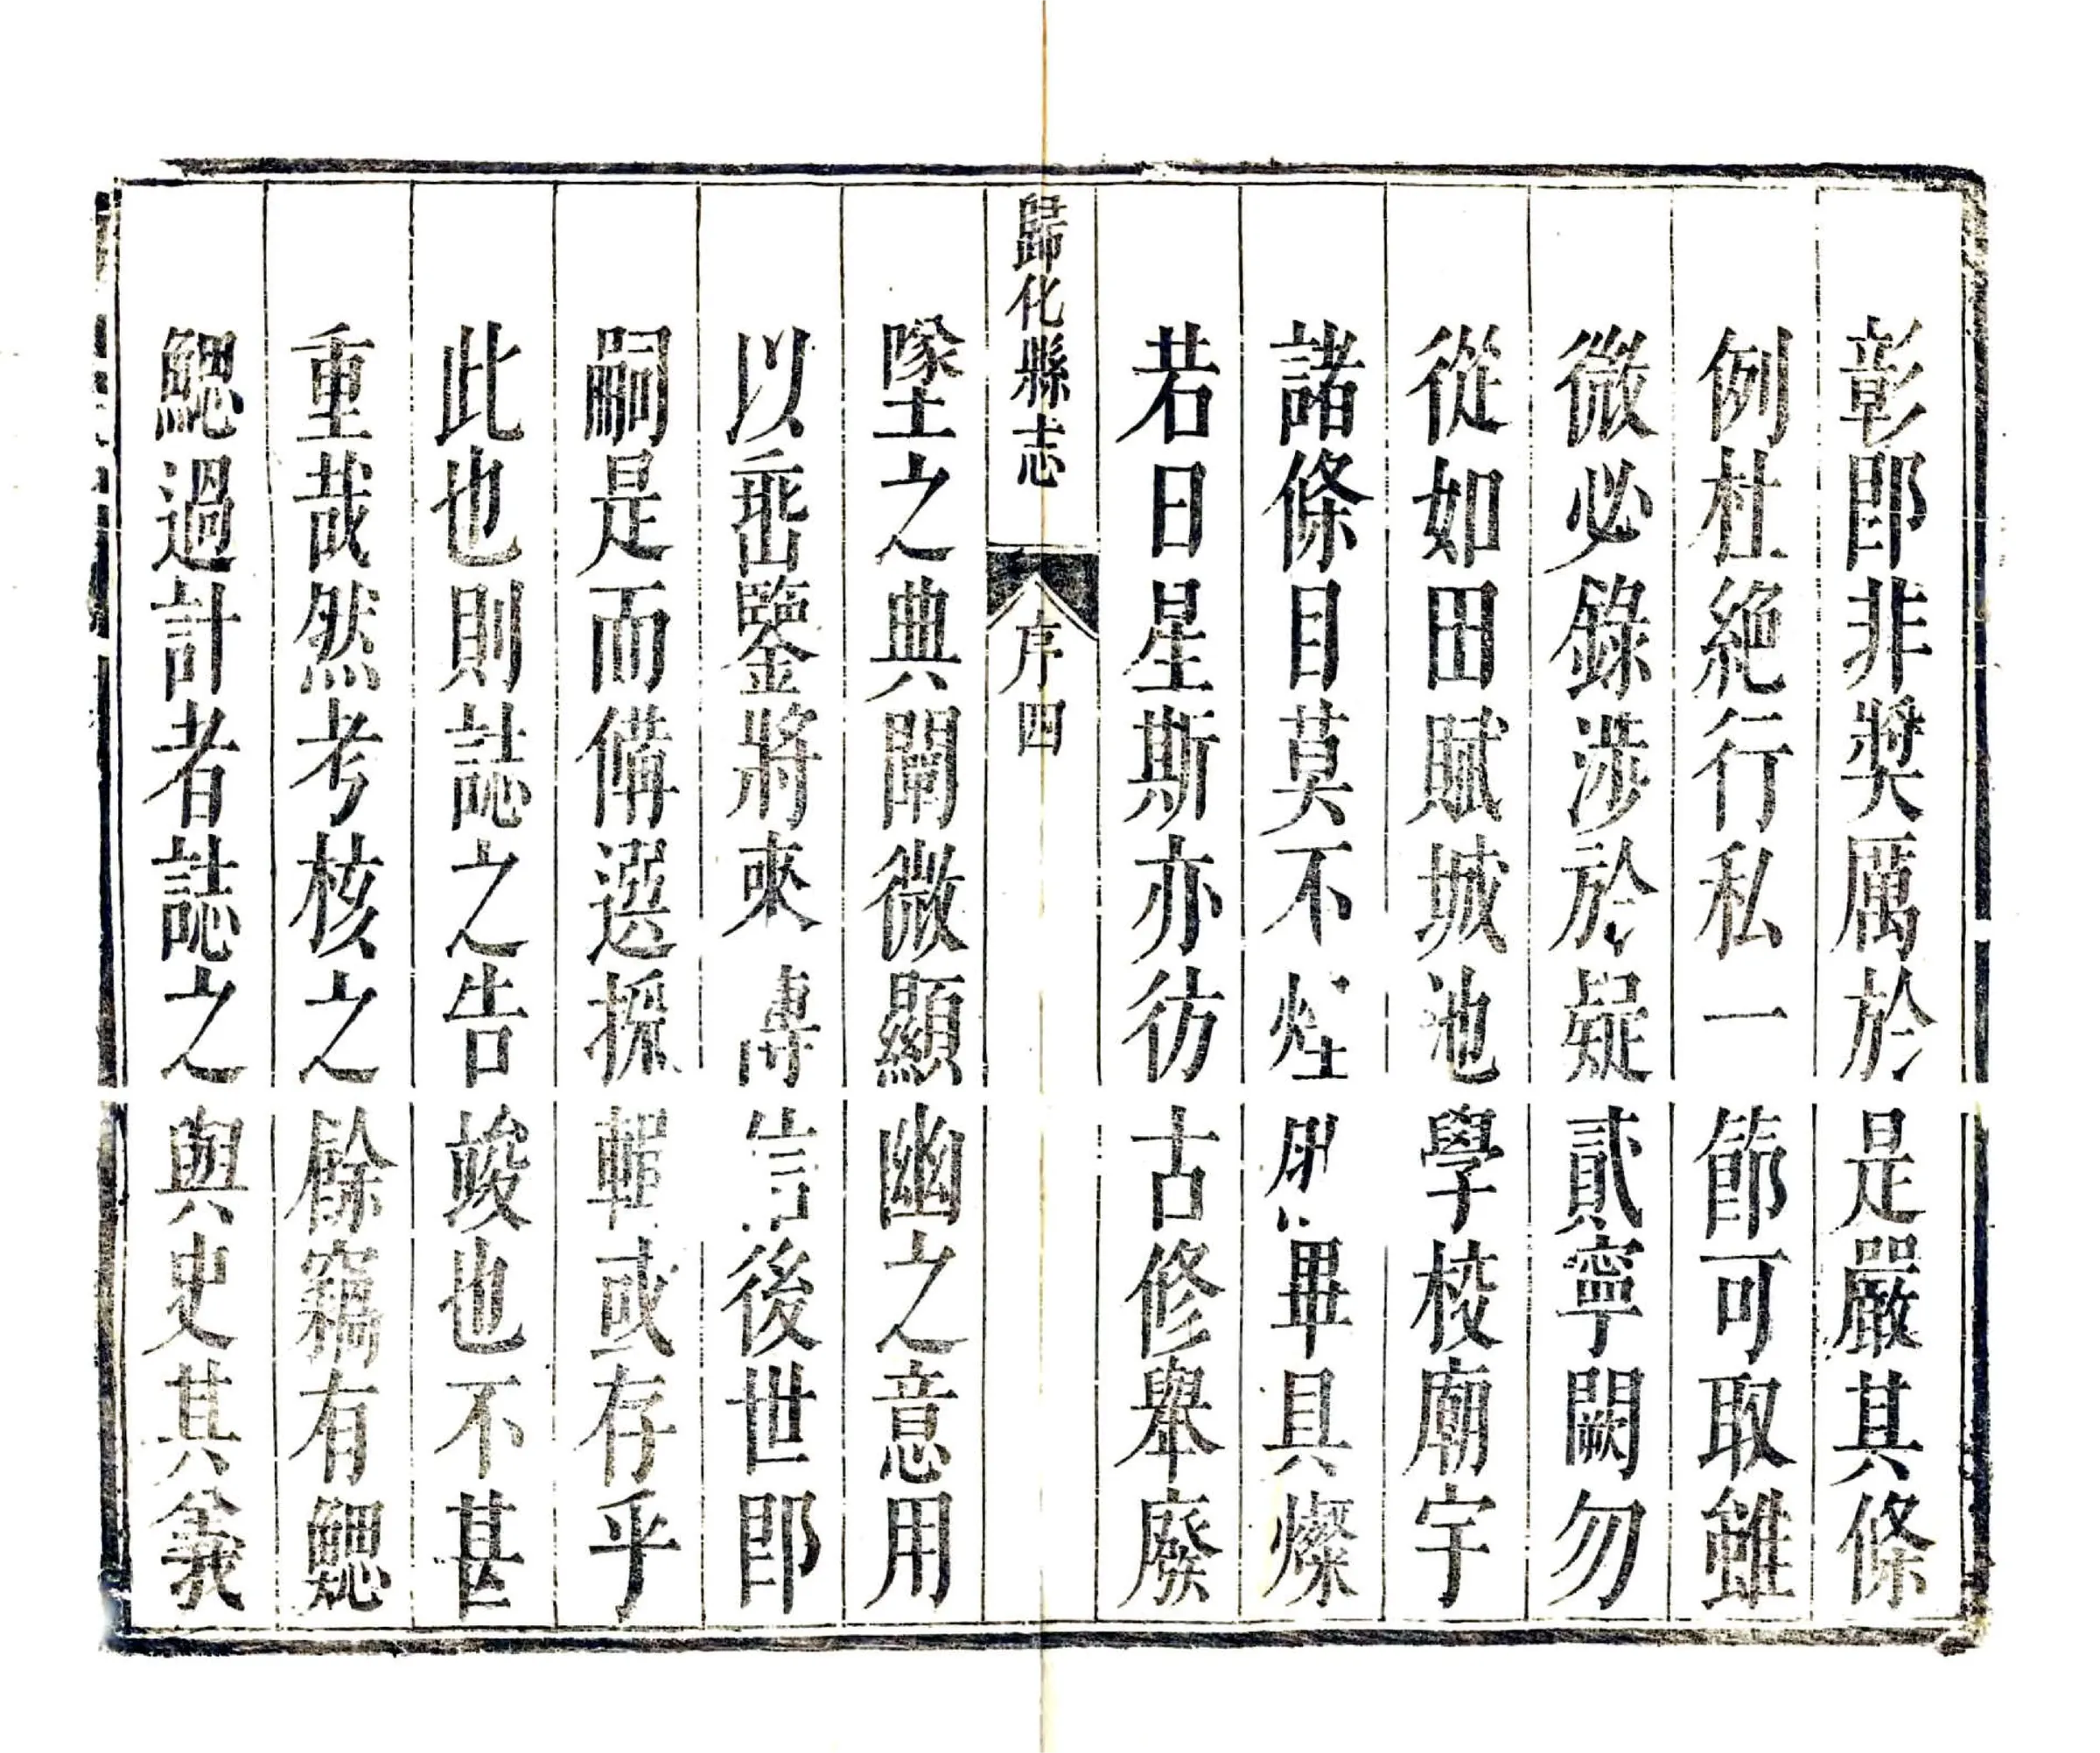 彰卽非奬厲於是嚴其條
例杜絶行私一節可取雖
微必錄涉於疑貳寧闕勿
從如田賦城池學校廟宇
諸條目莫不煙畢具燦
若日星斯亦彷古修舉廢
歸化縣志 序 四
墜之典闡微顯幽之意用
以垂鑒將來傳信後世卽
嗣是而備選採輯或存乎
此也則誌之告竣也不甚
重哉然考核之餘竊有鰓
鰓過計者誌之與史其義